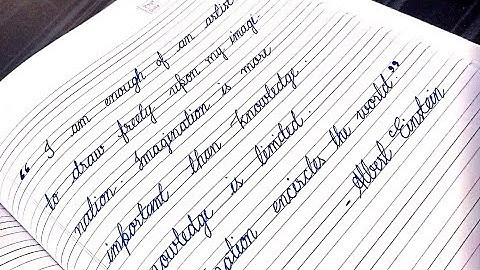 “ I am enough of an artist
to draw freely upon my imagi-
nation Imagination is more
important than knowledge.
nowledge is limited.
ation encircles the world”
- Albert Einstein